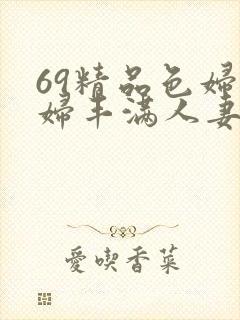 69精品色婦
婦丰滿人妻
愛喫香菜